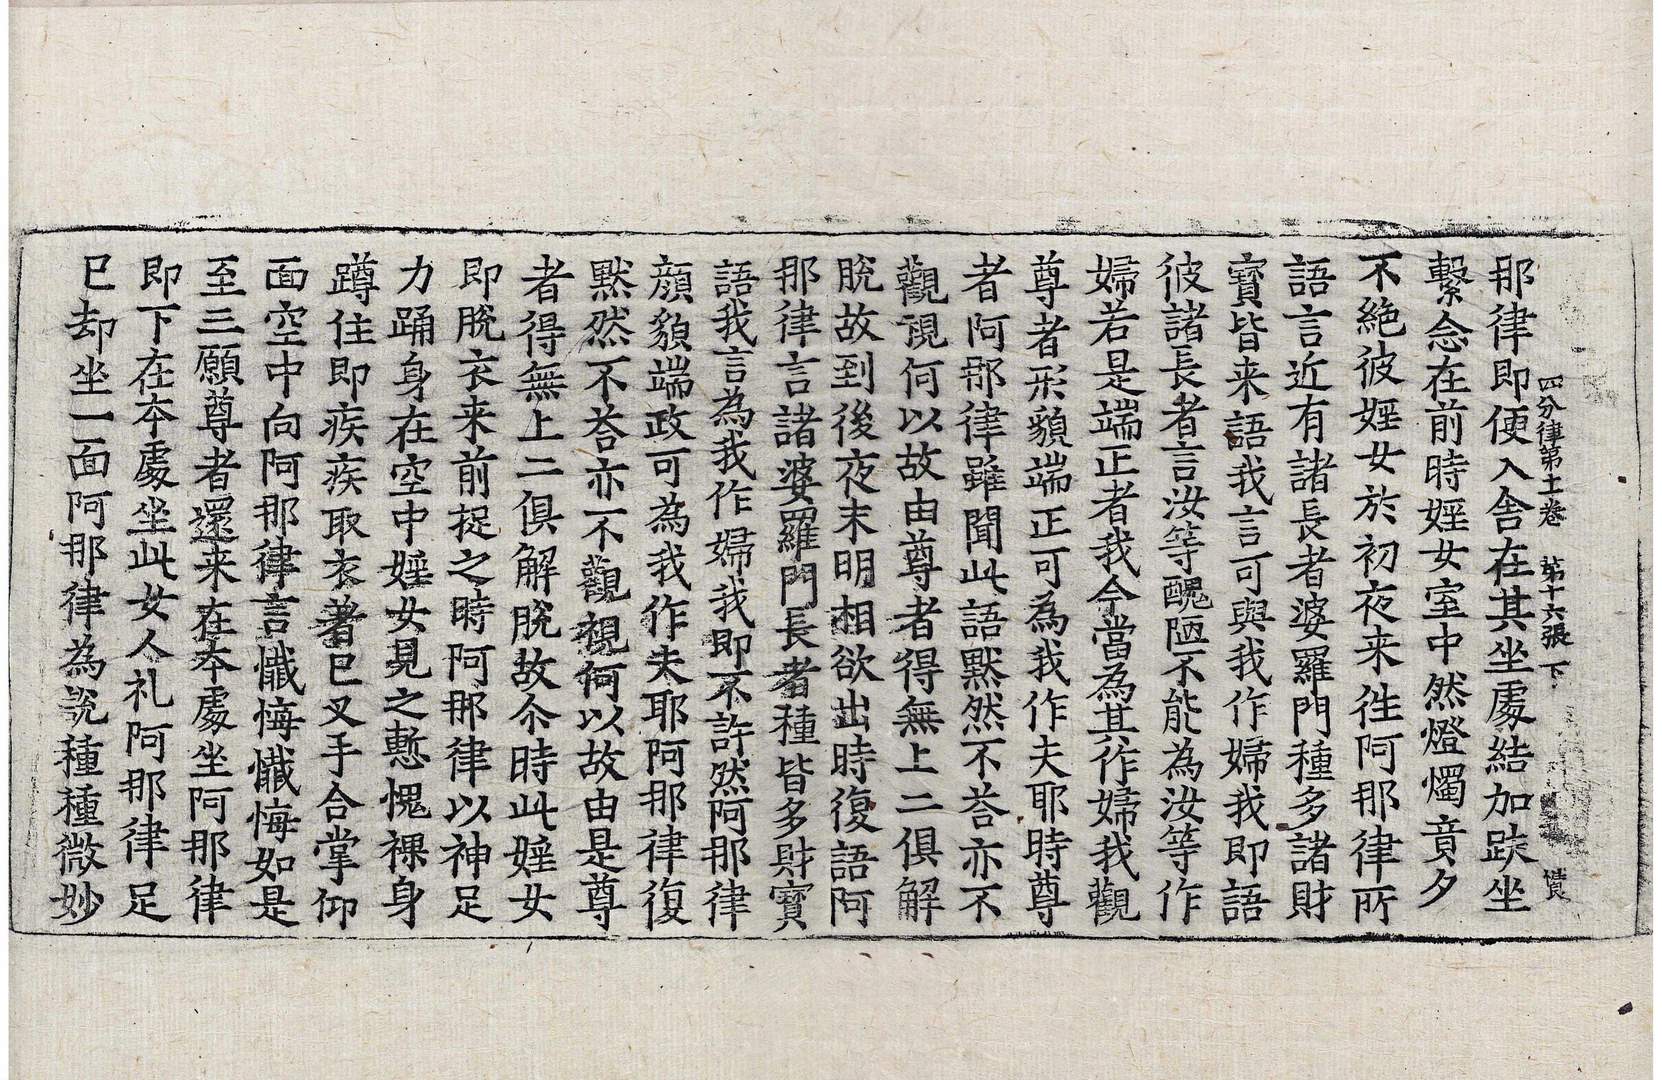 四分律第十一卷 第十六張 下
那律即便入舍在其坐處結加趺坐
繫念在前時婬女室中然燈燭竟夕
不絶彼婬女於初夜来往阿那律所
語言近有諸長者婆羅門種多諸財
寶皆来語我言可與我作婦我即語
彼諸長者言汝等醜陋不能為汝等作
婦若是端正者我今當為其作婦我觀
尊者形䫉端正可為我作夫耶時尊
者阿那律雖聞此語黙然不荅亦不
觀視何以故由尊者得無上二俱解
脫故到後夜末明相欲出時復語阿
那律言諸婆羅門長者種皆多財寶
語我言為我作婦我即不許然阿那律
顔䫉端政可為我作夫耶阿那律復
黙然不荅亦不觀視何以故由是尊
者得無上二俱解脫故尒時此婬女
即脫衣来前捉之時阿那律以神足
力踊身在空中婬女見之慙愧裸身
蹲住即疾疾取衣著已叉手合掌仰
面空中向阿那律言懺悔懺悔如是
至三願尊者還来在夲處坐阿那律
即下在夲處坐此女人礼阿那律足
已却坐一面阿那律為說種種微妙